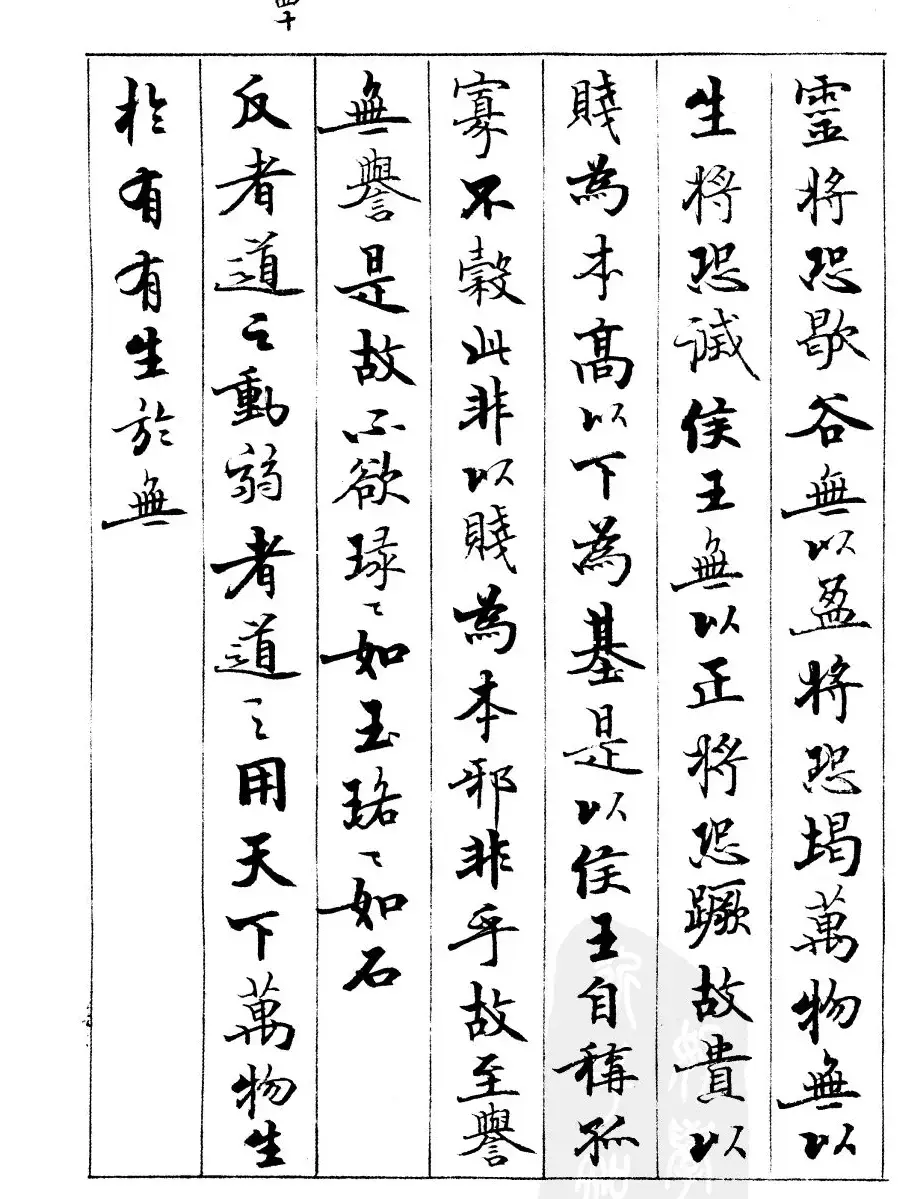 靈將恐歇谷無以盈將恐竭萬物無以
生將恐滅侯王無以正將恐蹶故貴以
賤為本高以下為基是以侯王自稱孤
寡不穀此非以賤為本邪非乎故至譽
無譽是故不欲琭〻如玉珞〻如石
四十
反者道之動弱者道之用天下萬物生
於有有生於無